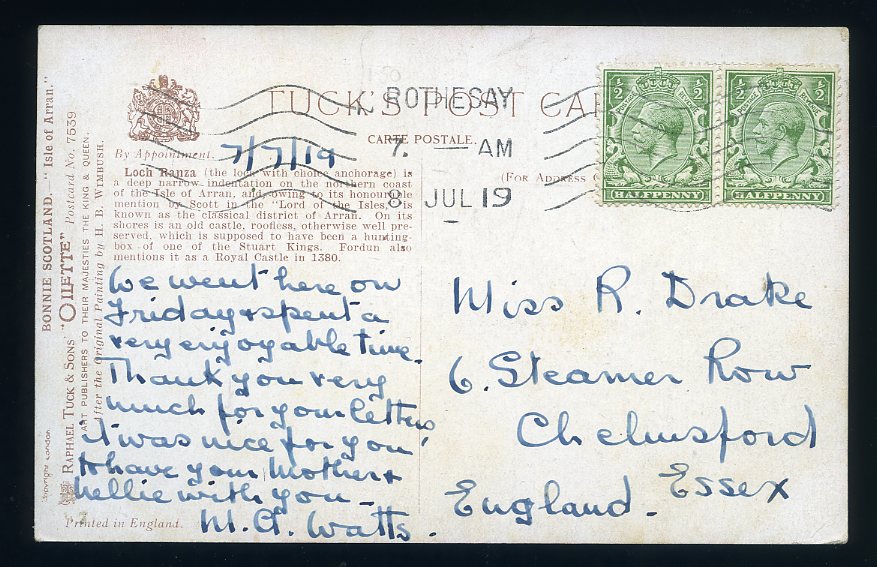 BONNIE SCOTLAND.—"Isle of Arran."
RAPHAEL TUCK & SONS' "OILETTE" Postcard No. 7539
ART PUBLISHERS TO THEIR MAJESTIES THE KING & QUEEN.
After the Original Painting by H. B. WIMBUSH.
Copyright London
TUCK'S POST CAR
CARTE POSTALE.
(FOR ADDRESS O
By Appointment.
7/7/19
ROTHESAY
7. — AM
8 JUL 19
½ ½
HALFPENNY
½ ½
HALFPENNY
Loch Ranza (the loch with choice anchorage) is
a deep narrow indentation on the northern coast
of the Isle of Arran, and owing to its honourable
mention by Scott in the "Lord of the Isles," is
known as the classical district of Arran. On its
shores is an old castle, roofless, otherwise well pre-
served, which is supposed to have been a hunting-
box of one of the Stuart Kings. Fordun also
mentions it as a Royal Castle in 1380.
We went here on
Friday & spent a
very enjoyable time.
Thank you very
much for your letters
it was nice for you
to have your Mother &
Nellie with you —
M. A. Watts.
Miss R. Drake
6. Steamer Row
Chelmsford
Essex
England.
Printed in England.